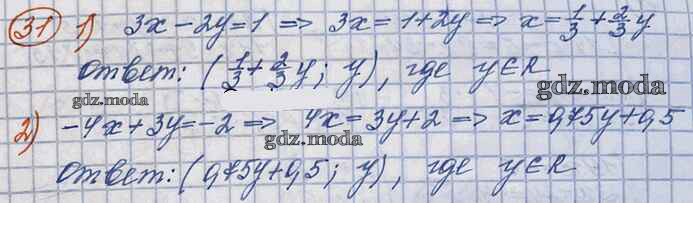 31 1) 3x - 2y = 1 => 3x = 1 + 2y => x = 1/3 + 2/3 y
Ответ: (1/3 + 2/3 y; y), где y ∈ R
gdz.moda
gdz.moda
2) -4x + 3y = -2 => 4x = 3y + 2 => x = 0,75y + 0,5
gdz.moda
Ответ: (0,75y + 0,5; y), где y ∈ R